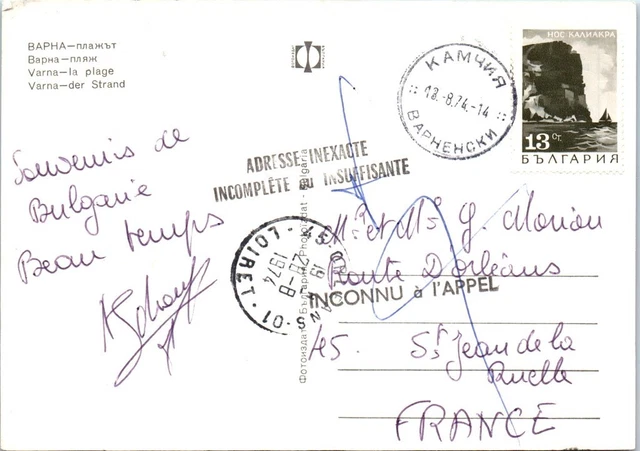 ВАРНА—плажът
Варна—пляж
Varna—la plage
Varna—der Strand
КАМЧИЯ
18.-8.74.-14
ВАРНЕНСКИ
НОС КАЛИАКРА
13 СТ.
БЪЛГАРИЯ
Souvenirs de
Bulgarie
Beau temps
ADRESSE INEXACTE
INCOMPLÈTE ou INSUFFISANTE
45
19
26-8
1974
S-01. LOIRET
Фотоиздат България Photoizdat - Bulgaria
Mr et Me G. Morion
Route D'orléans
INCONNU à l'APPEL
45. St Jean de la
Ruelle
FRANCE